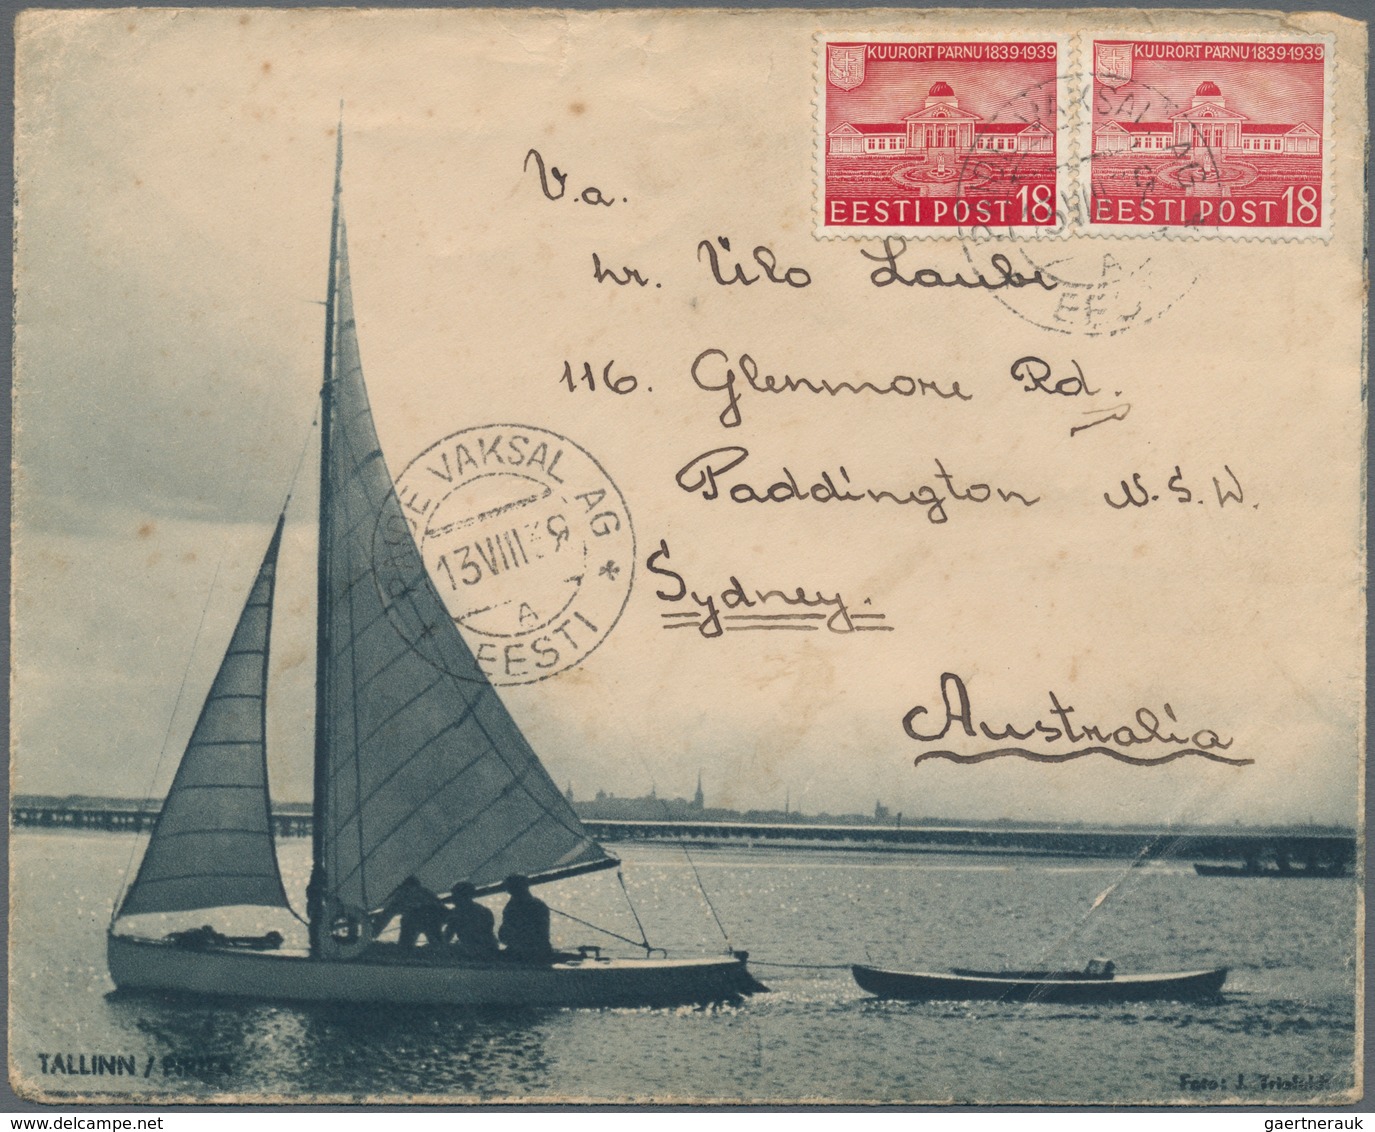 KUURORT PÄRNU 1839-1939
EESTI POST 18
KUURORT PÄRNU 1839-1939
EESTI POST 18
VAKSAL AG
V.a.
hr. Ülo Laube
116. Glenmore Rd.
Paddington N.S.W.
Sydney.
Australia
VAKSAL AG
13 VIII 39
A
EESTI
TALLINN / PIRITA
Foto: J.
gaertnerauk